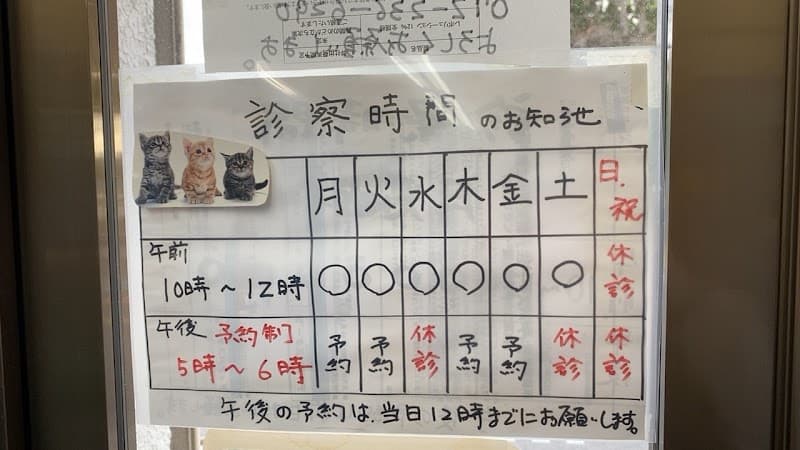 診察時間のお知らせ
月 火 水 木 金 土 日.祝
午前
10時～12時 ○ ○ ○ ○ ○ ○ 休診
午後 予約制
5時～6時 予約 予約 休診 予約 予約 休診 休診
午後の予約は、当日12時までにお願いします。